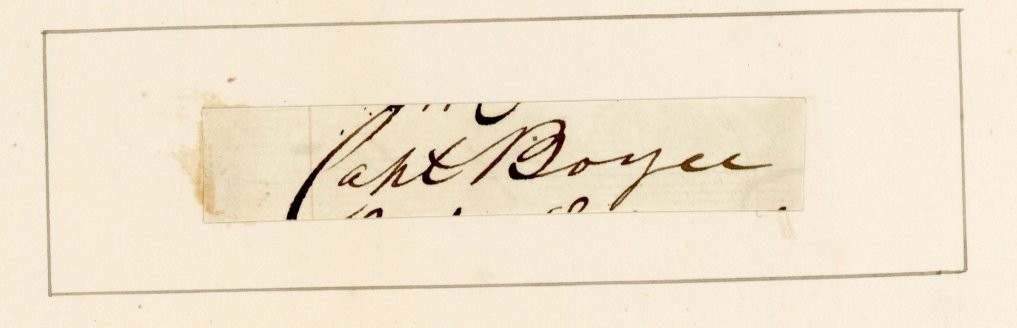 Capt Boyce